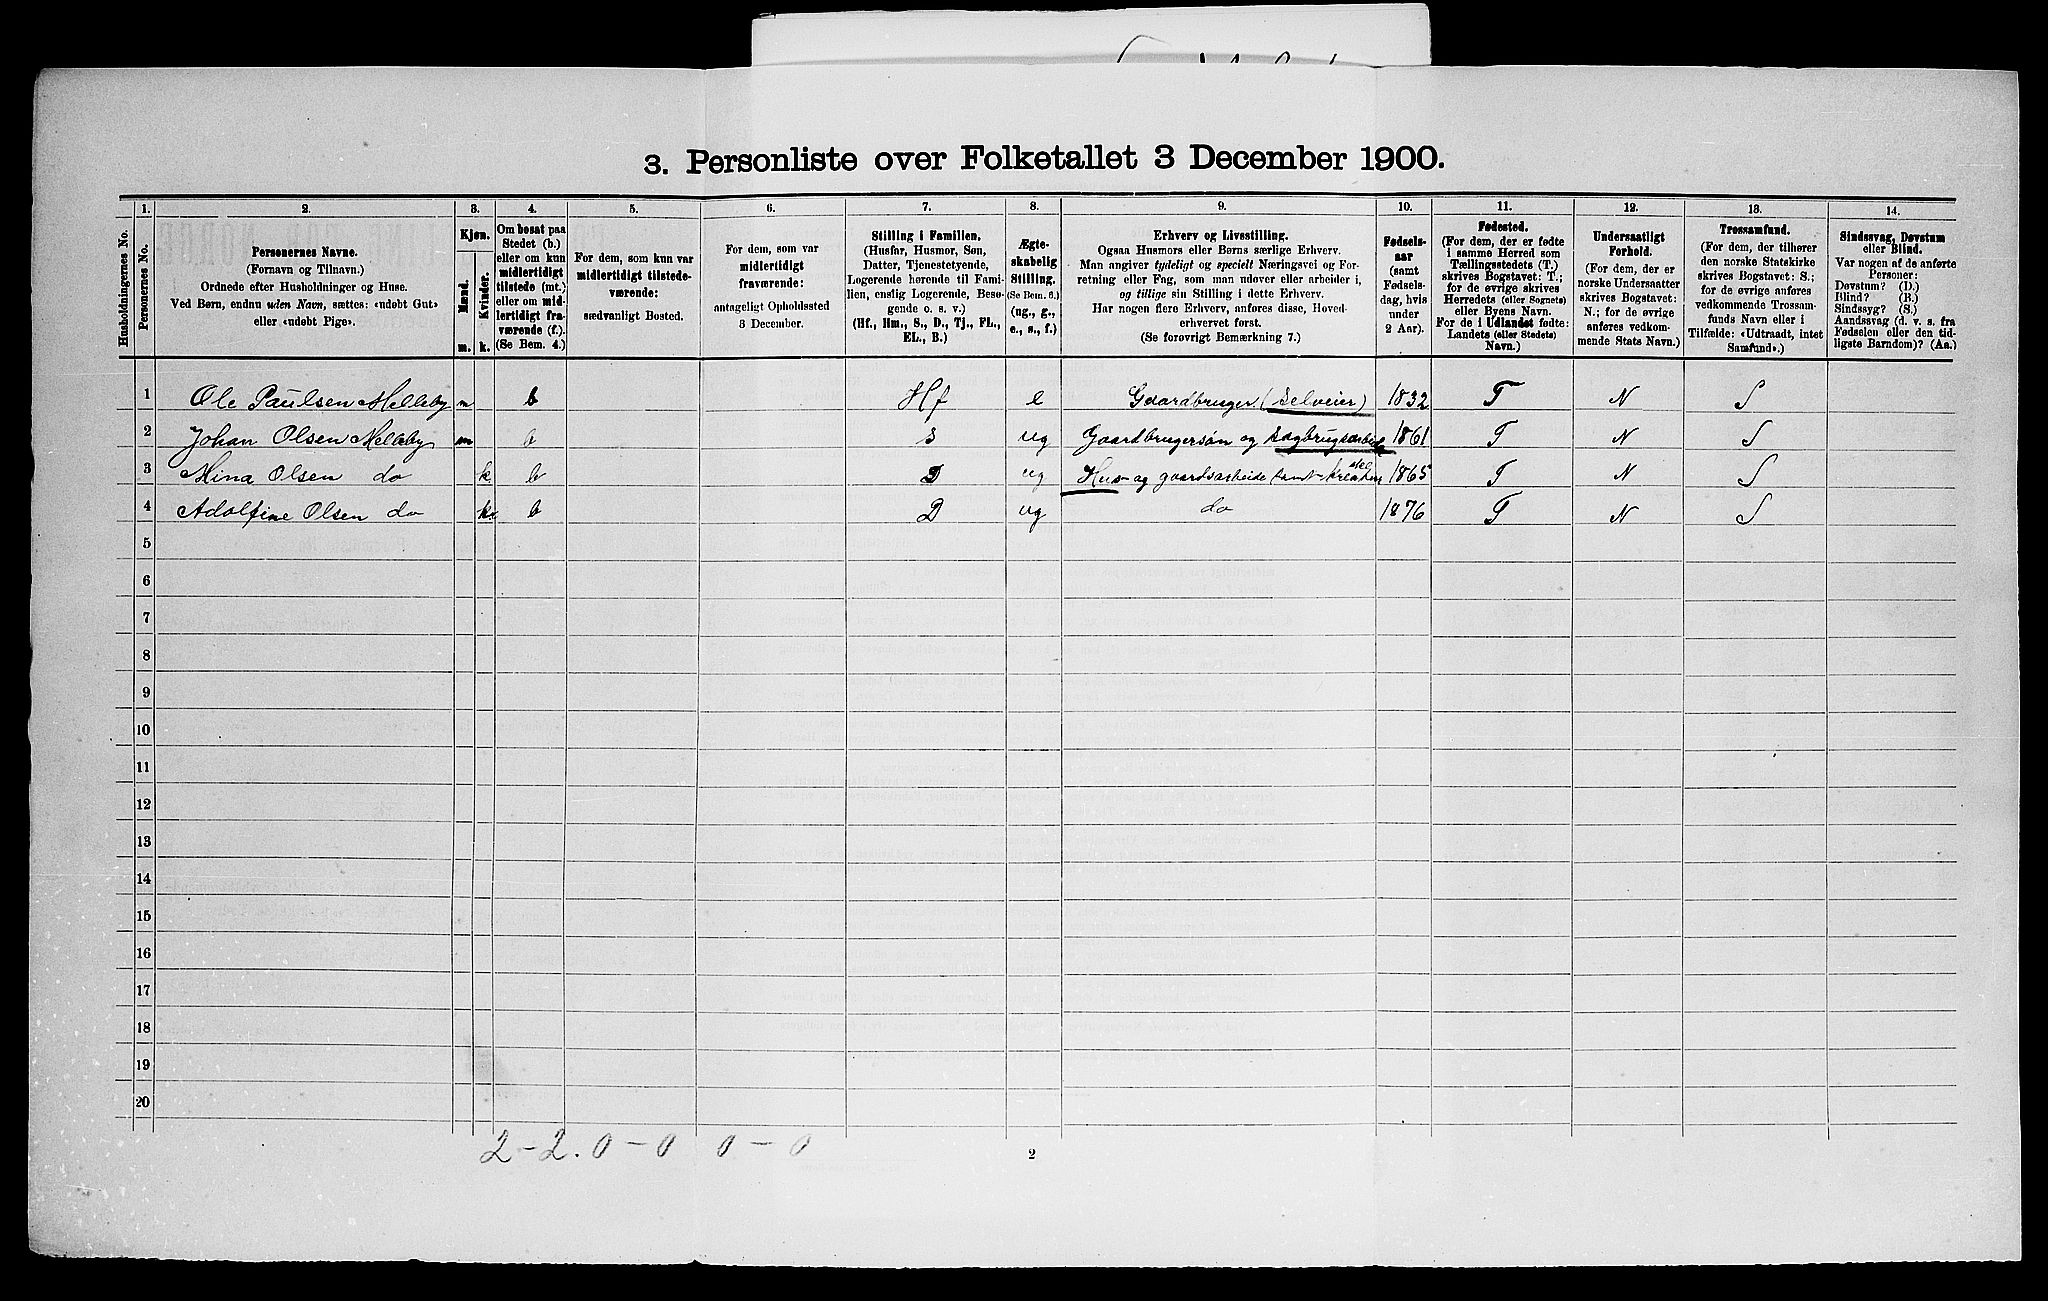 3. Personliste over Folketallet 3 December 1900.
Husholdningernes No.
1.
Personernes No.
2.
Personernes Navne.
(Fornavn og Tilnavn.)
Ordnede efter Husholdninger og Huse.
Ved Børn, endnu uden Navn, sættes: «udøbt Gut»
eller «udøbt Pige».
3.
Kjøn.
Mænd.
m.
Kvinder.
k.
4.
Om bosat paa
Stedet (b.)
eller om kun
midlertidigt
tilstede (mt.)
eller om mid-
lertidigt fra-
værende (f.).
(Se Bem. 4.)
5.
For dem, som kun var
midlertidigt tilstede-
værende:
sædvanligt Bosted.
6.
For dem, som var
midlertidigt
fraværende:
antageligt Opholdssted
3 December.
7.
Stilling i Familien.
(Husfar, Husmor, Søn,
Datter, Tjenestetyende,
Logerende hørende til Fami-
lien, enslig Logerende, Besø-
gende o. s. v.)
(Hf., Hm., S., D., Tj., FL.,
EL., B.)
8.
Ægte-
skabelig
Stilling.
(Se Bem. 6.)
(ug., g.,
e., s., f.)
9.
Erhverv og Livsstilling.
Ogsaa Husmors eller Børns særlige Erhverv.
Man angiver tydeligt og specielt Næringsvei og For-
retning eller Fag, som man udøver eller arbeider i,
og tillige sin Stilling i dette Erhverv.
Har nogen flere Erhverv, anføres disse, Hoved-
erhvervet først.
(Se forøvrigt Bemærkning 7.)
10.
Fødsels-
aar
(samt
Fødsels-
dag, hvis
under
2 Aar).
11.
Fødested.
(For dem, der er fødte
i samme Herred som
Tællingsstedets (T.)
skrives Bogstavet: T.;
for de øvrige skrives
Herredets (eller Sognets)
eller Byens Navn.
For de i Udlandet fødte:
Landets (eller Stedets)
Navn.)
12.
Undersaatligt
Forhold.
(For dem, der er
norske Undersaatter
skrives Bogstavet:
N.; for de øvrige
anføres vedkom-
mende Stats Navn.)
13.
Trossamfund.
(For dem, der tilhører
den norske Statskirke
skrives Bogstavet: S.;
for de øvrige anføres
vedkommende Trossam-
funds Navn eller i
Tilfælde: «Udtraadt, intet
Samfund».)
14.
Sindssvag, Døvstum
eller Blind.
Var nogen af de anførte
Personer:
Døvstum? (D.)
Blind? (B.)
Sindssyg? (S.)
Aandssvag (d. v. s. fra
Fødselen eller den tid-
ligste Barndom)? (Aa.)
1 Ole Paulsen Melleby m b Hf e Gaardbruger (selveier) 1832 T N S
2 Johan Olsen Melleby m b S ug Gaardbrugersøn og sagbrugsarbeide 1861 T N S
3 Mina Olsen do k b D ug Hus- og gaardsarbeide samt kreaturstel 1865 T N S
4 Adolfine Olsen do k b D ug do 1876 T N S
5
6
7
8
9
10
11
12
13
14
15
16
17
18
19
20
2-2. 0-0 0-0
2